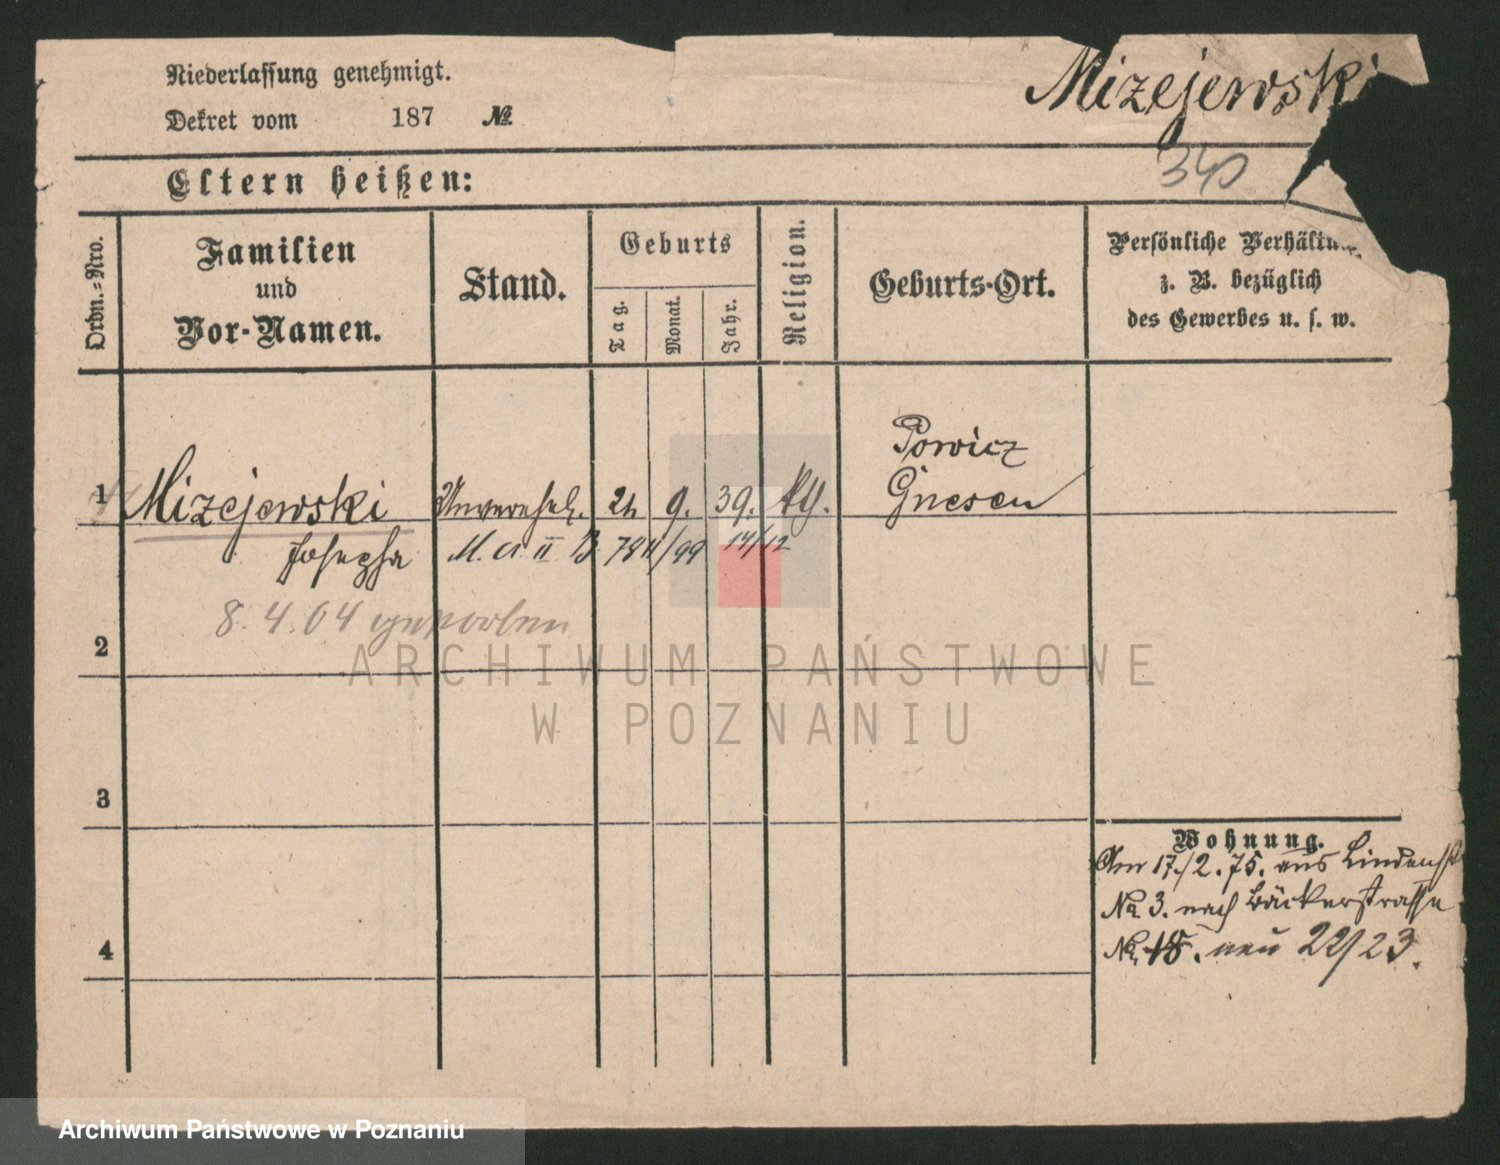 Niederlassung genehmigt.
Dekret vom 187 №
Mizejewski
340
Eltern heißen:
Ordn.-Nro.
Familien
und
Vor-Namen.
Stand.
Geburts
Tag.
Monat.
Jahr.
Religion.
Geburts-Ort.
Persönliche Verhältn
z. B. bezüglich
des Gewerbes u. s. w.
Powicz
1 Mizejewski Unverehel. 24 9. 39. kth. Gnesen
Josepha M. A. II B. 78 11/99 14/12
8.4.04 gestorben
2
3
4
Wohnung.
Am 17./2.75. aus Lindenst
No 3. nach Bäckerstrasse
No. 18. neu 22/23.
ARCHIWUM PAŃSTWOWE
W POZNANIU
Archiwum Państwowe w Poznaniu